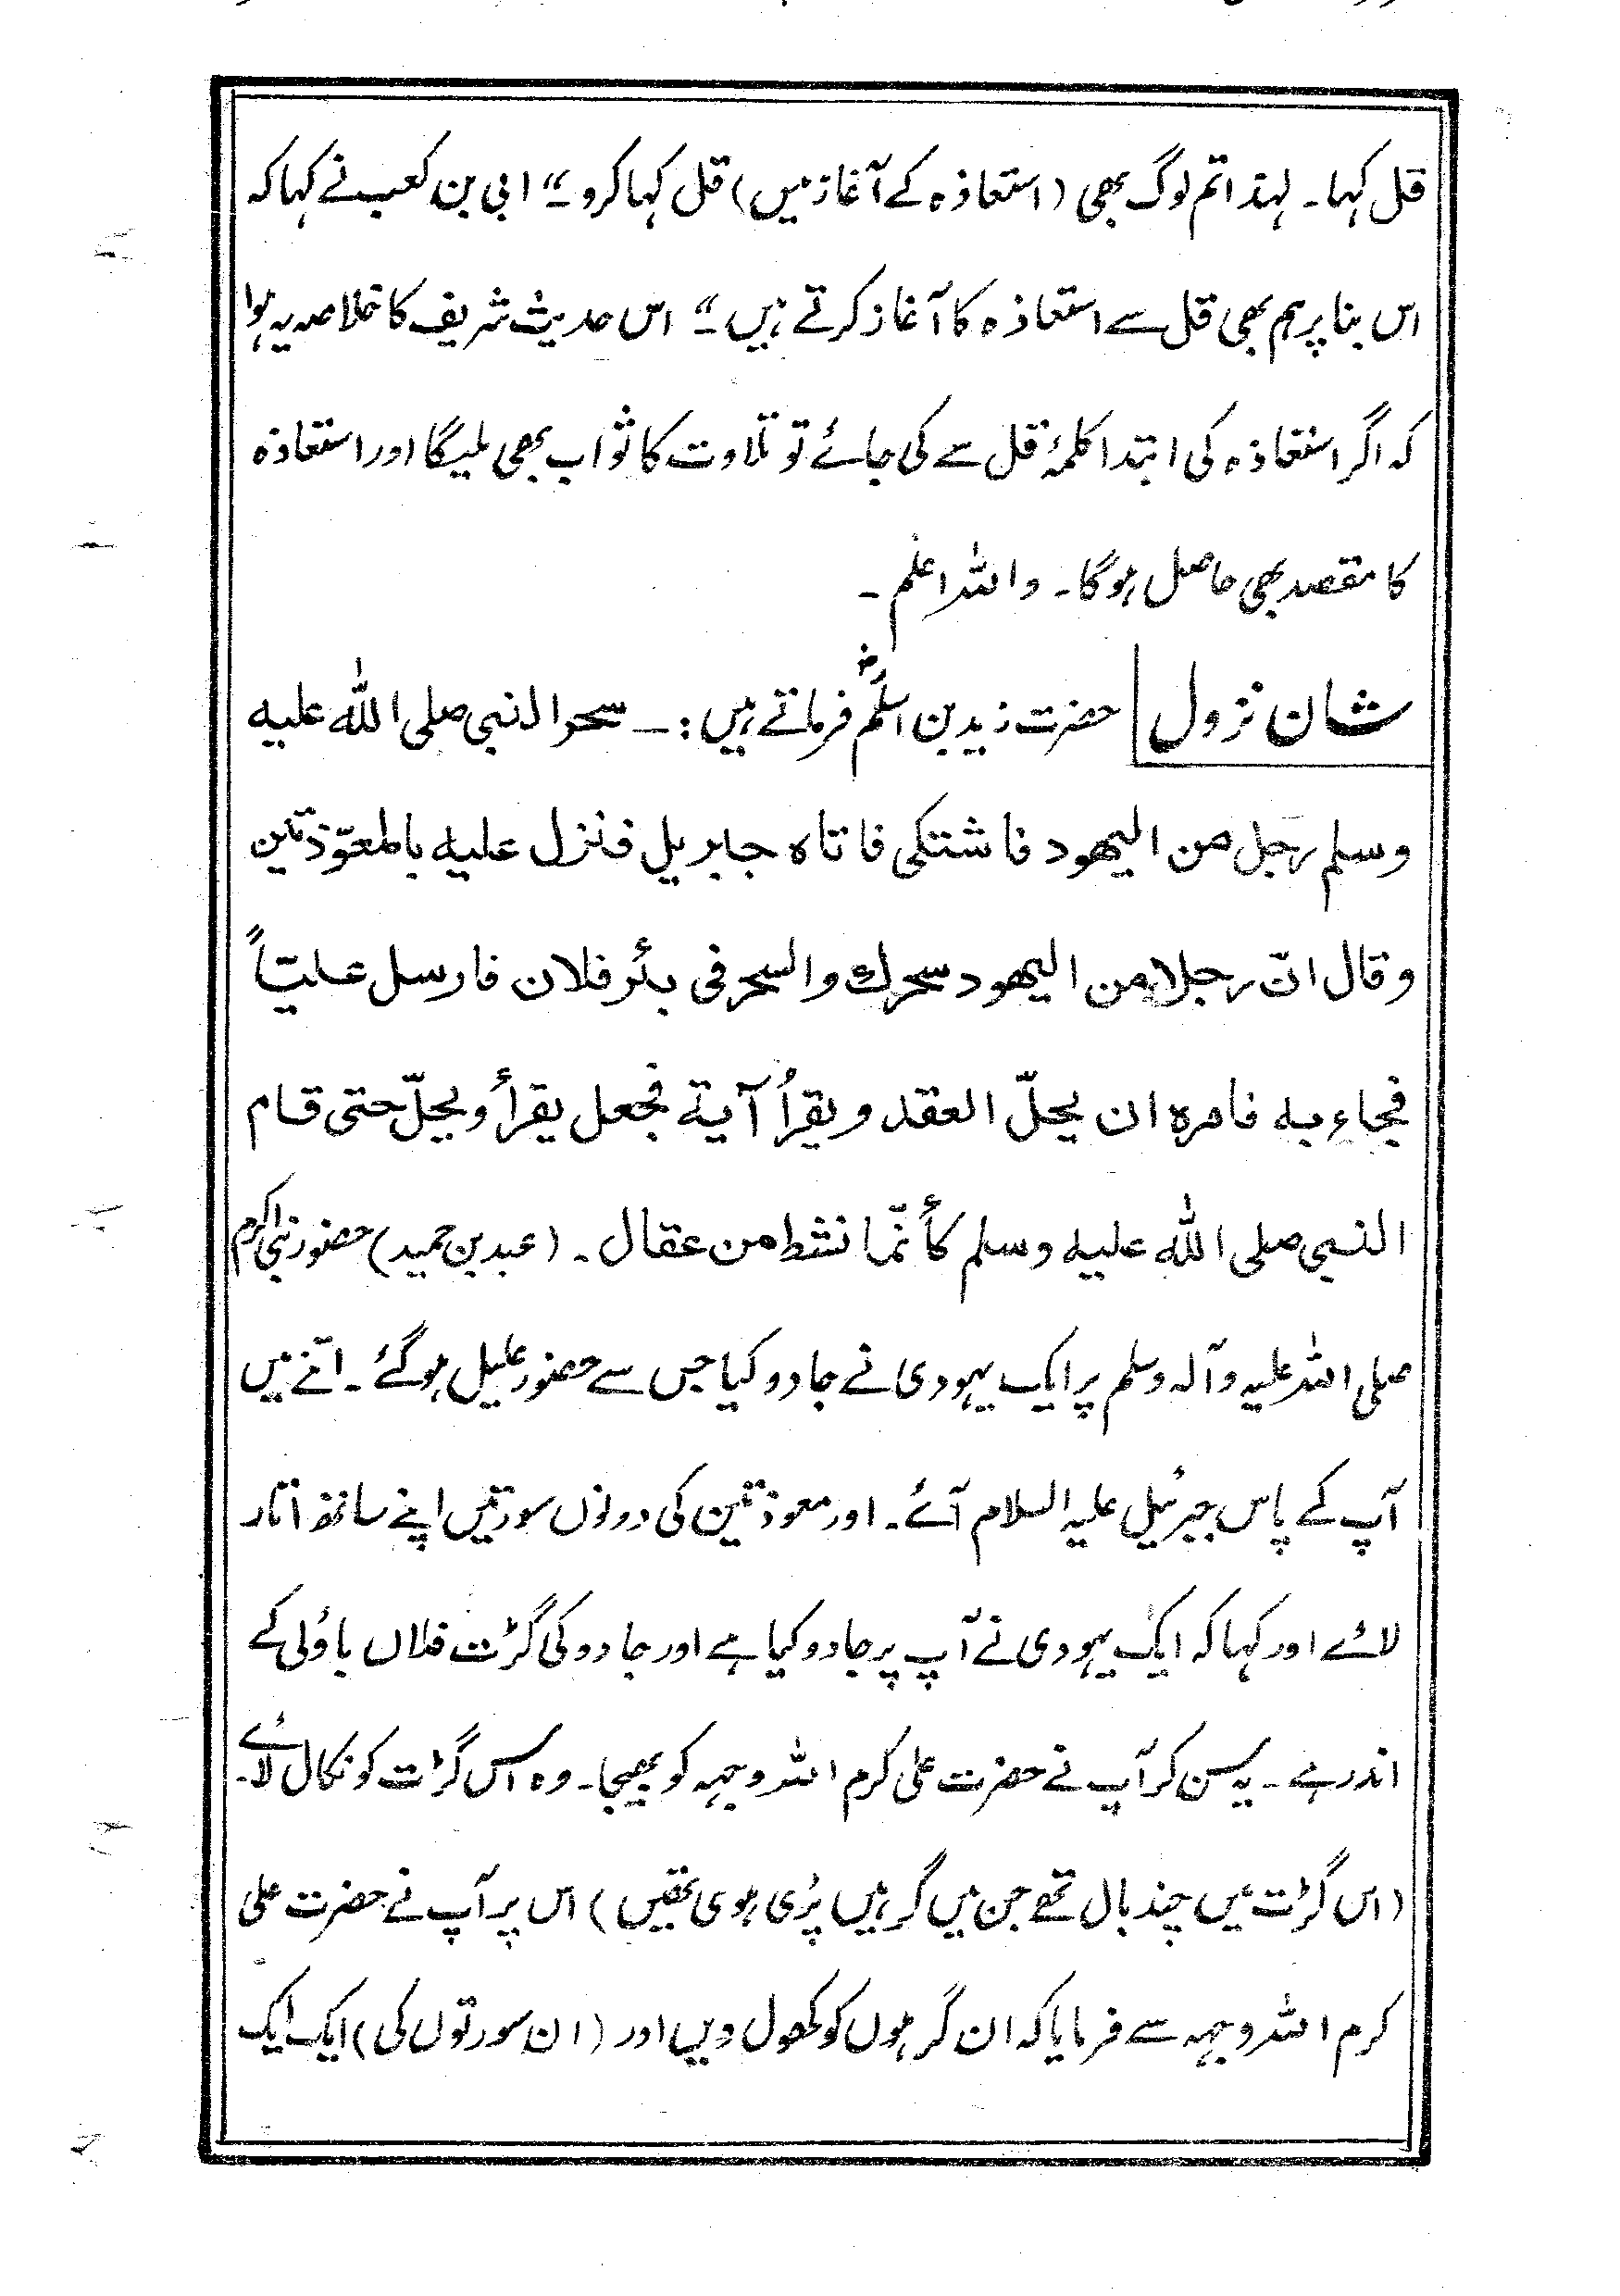 قل کہا۔ لہذا تم لوگ بھی (استعاذہ کے آغاز میں) قل کہا کرو۔“ ابی بن کعب نے کہا کہ
اس بنا پر ہم بھی قل سے استعاذہ کا آغاز کرتے ہیں۔“ اس حدیث شریف کا خلاصہ یہ ہوا
کہ اگر استعاذہ کی ابتدا کلمۂ قل سے کی جائے تو تلاوت کا ثواب بھی ملیگا اور استعاذہ
کا مقصد بھی حاصل ہوگا۔ واللہ اعلم۔
شان نزول حضرت زید بن اسلمؓ فرماتے ہیں:۔ سحر النبی صلی اللہ علیہ
وسلم رجل من الیھود فاشتکی فاتاہ جبریل فنزل علیہ بالمعوّذتین
وقال انّ رجلا من الیھود سحرك والسحر فی بئر فلان فارسل علیّاً
فجاء بہ فامرہ ان یحلّ العقد ویقرأ آیة فجعل یقرأ ویحلّ حتی قام
النبی صلی اللہ علیہ وسلم کأنّما نشط من عقال۔ (عبد بن حمید) حضور نبی اکرم
صلی اللہ علیہ وآلہ وسلم پر ایک یہودی نے جادو کیا جس سے حضور علیل ہوگئے۔ اتنے میں
آپ کے پاس جبرئیل علیہ السلام آئے۔ اور معوذتین کی دونوں سورتیں اپنے ساتھ اتار
لائے اور کہا کہ ایک یہودی نے آپ پر جادو کیا ہے اور جادو کی گڑت فلاں باؤلی کے
اندر ہے۔ یہ سن کر آپ نے حضرت علی کرم اللہ وجہہ کو بھیجا۔ وہ اس گڑت کو نکال لائے۔
(اس گڑت میں چند بال تھے جن میں گرہیں پڑی ہوی تھیں) اس پر آپ نے حضرت علی
کرم اللہ وجہہ سے فرمایا کہ ان گرہوں کو کھول دیں اور (ان سورتوں کی) ایک ایک